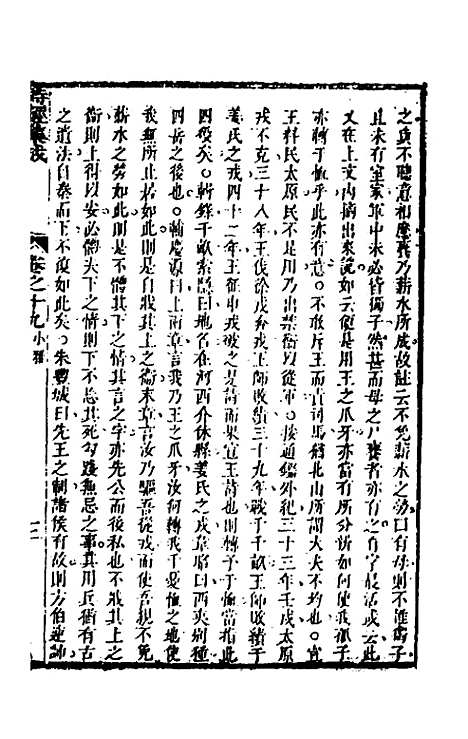 之兵不聽意相應我乃薪水所成故註云不免薪水之勞曰有母則不唯孤子
且未有室家軍中未必皆獨子然甚而母之尸饔者亦有之有字最活或云此
又在上文內摘出來說如云便是用王之爪牙亦當有所分析如何使我孤子
亦轉于恤乎此亦有意不敢斥王而責司馬猶北山所謂大夫不均也宣
王料民太原民不足用乃出禁衛以從軍按通鑑外紀三十三年王伐太原
戎不克三十八年王伐條戎奔戎王師敗績三十九年戰于千畝王師敗績于
姜氏之戎四十一年王征申戎破之是詩而果宣王詩也則轉予于恤當指此
四役矣解頤千畝索隱曰地名在河西介休縣姜氏之戎韋昭曰西夷別種
四岳之後也輔慶源曰上兩章言我乃王之爪牙汝何轉我于憂恤之地使
我無所止居如此則是自戕其上之衞末章言汝乃驅吾從戎而使吾親不免
薪水之勞如此則是不體其下之情其言之字亦先公而後私也不戕其上之
衞則上得以安必體夫下之情則下不忘其死勾踐無忌之事其用兵猶有古
之遺法自秦而下不復如此矣朱豐城曰先王之制諸侯有故則方伯連帥
卷之十九 小雅